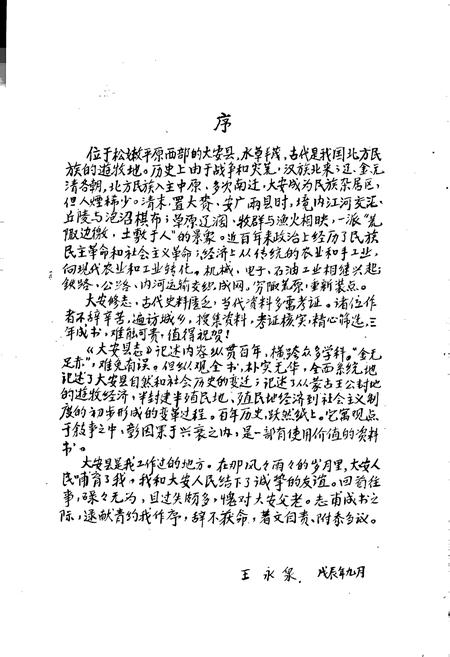 序
位于松嫩平原西部的大安县，水草丰茂，古代是我国北方民
族的游牧地。历史上由于战争和灾荒，汉族北来；辽、金、元
清各朝，北方民族入主中原，多次南迁，大安成为民族杂居区，
但人烟稀少。清末，置大赉、安广两县时，境内江河交汇，
丘陵与泡沼棋布；草原辽阔，牧群与渔火相映，一派"荒
陬边徼，土敷于人"的景象。近百年来政治上经历了民族
民主革命和社会主义革命；经济上从传统的农业和手工业，
向现代农业和工业转化。机械、电子、石油工业相继兴起；
铁路、公路、内河运输交织成网。穷陬荒原，重新装点。
大安修志，古代史料匮乏，当代资料多需考证。诸位作
者不辞辛苦，遍访城乡，搜集资料，考证核实，精心筛选，三
年成书，难能可贵，值得祝贺！
《大安县志》记述内容纵贯百年，横跨众多学科。"金无
足赤"，难免有误。但纵观全书，朴实无华，全面系统地
记述了大安自然和社会历史的变迁；记述了从蒙古王公封地
的游牧经济，半封建半殖民地、殖民地经济到社会主义制
度的初步形成的变革过程。百年历史，跃然纸上。它寓观点
于叙事之中，彰因果于兴衰之内，是一部有使用价值的资料
书。
大安县是我工作过的地方。在那风风雨雨的岁月里，大安人
民哺育了我，我和大安人民结下了诚挚的友谊。回首往
事，碌碌无为，且过失颇多，愧对大安父老。志甫成书之
际，遂献青约我作序，辞不获命，著文自责、附忝刍议。
王永泉 戊辰年九月